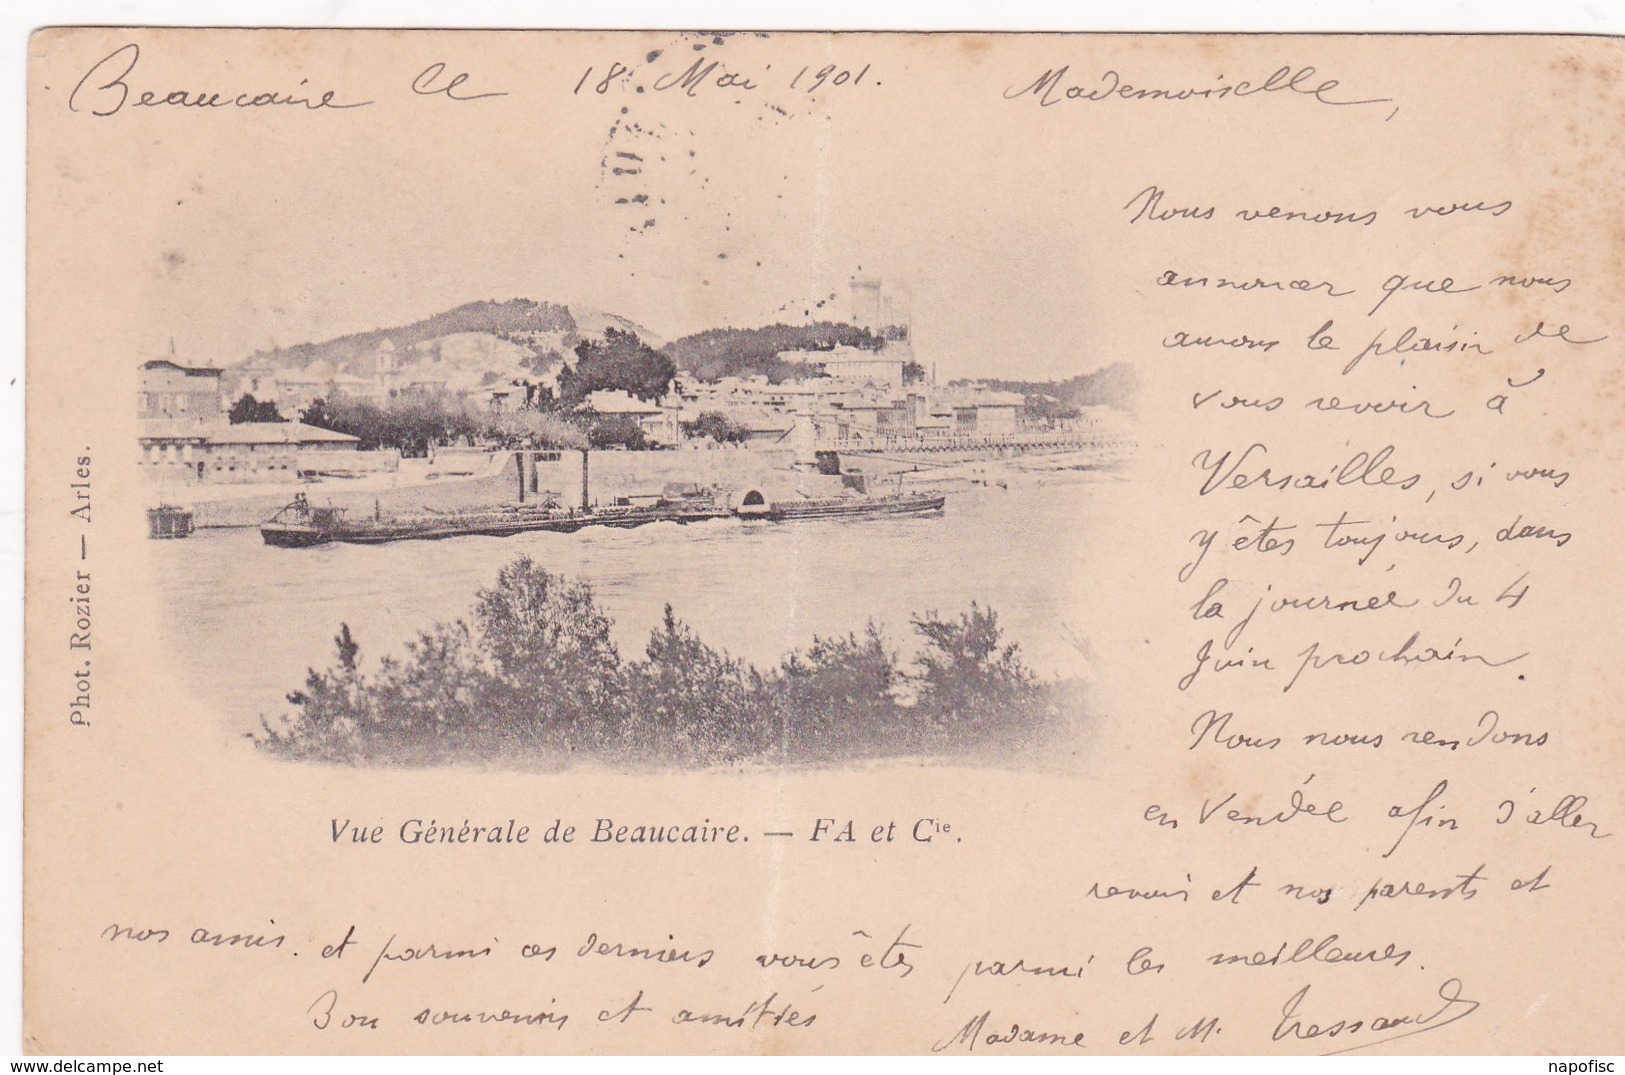 Beaucaire le 18 Mai 1901.
Mademoiselle,
Nous venons vous
annoncer que nous
aurons le plaisir de
vous revoir à
Versailles, si vous
y êtes toujours, dans
la journée du 4
Juin prochain.
Nous nous rendons
en Vendée afin d'aller
revoir et nos parents et
nos amis. et parmi ces derniers vous êtes parmi les meilleures.
Bon souvenirs et amitiés
Madame et M.
Phot. Rozier — Arles.
Vue Générale de Beaucaire. — FA et Cie.
napofisc